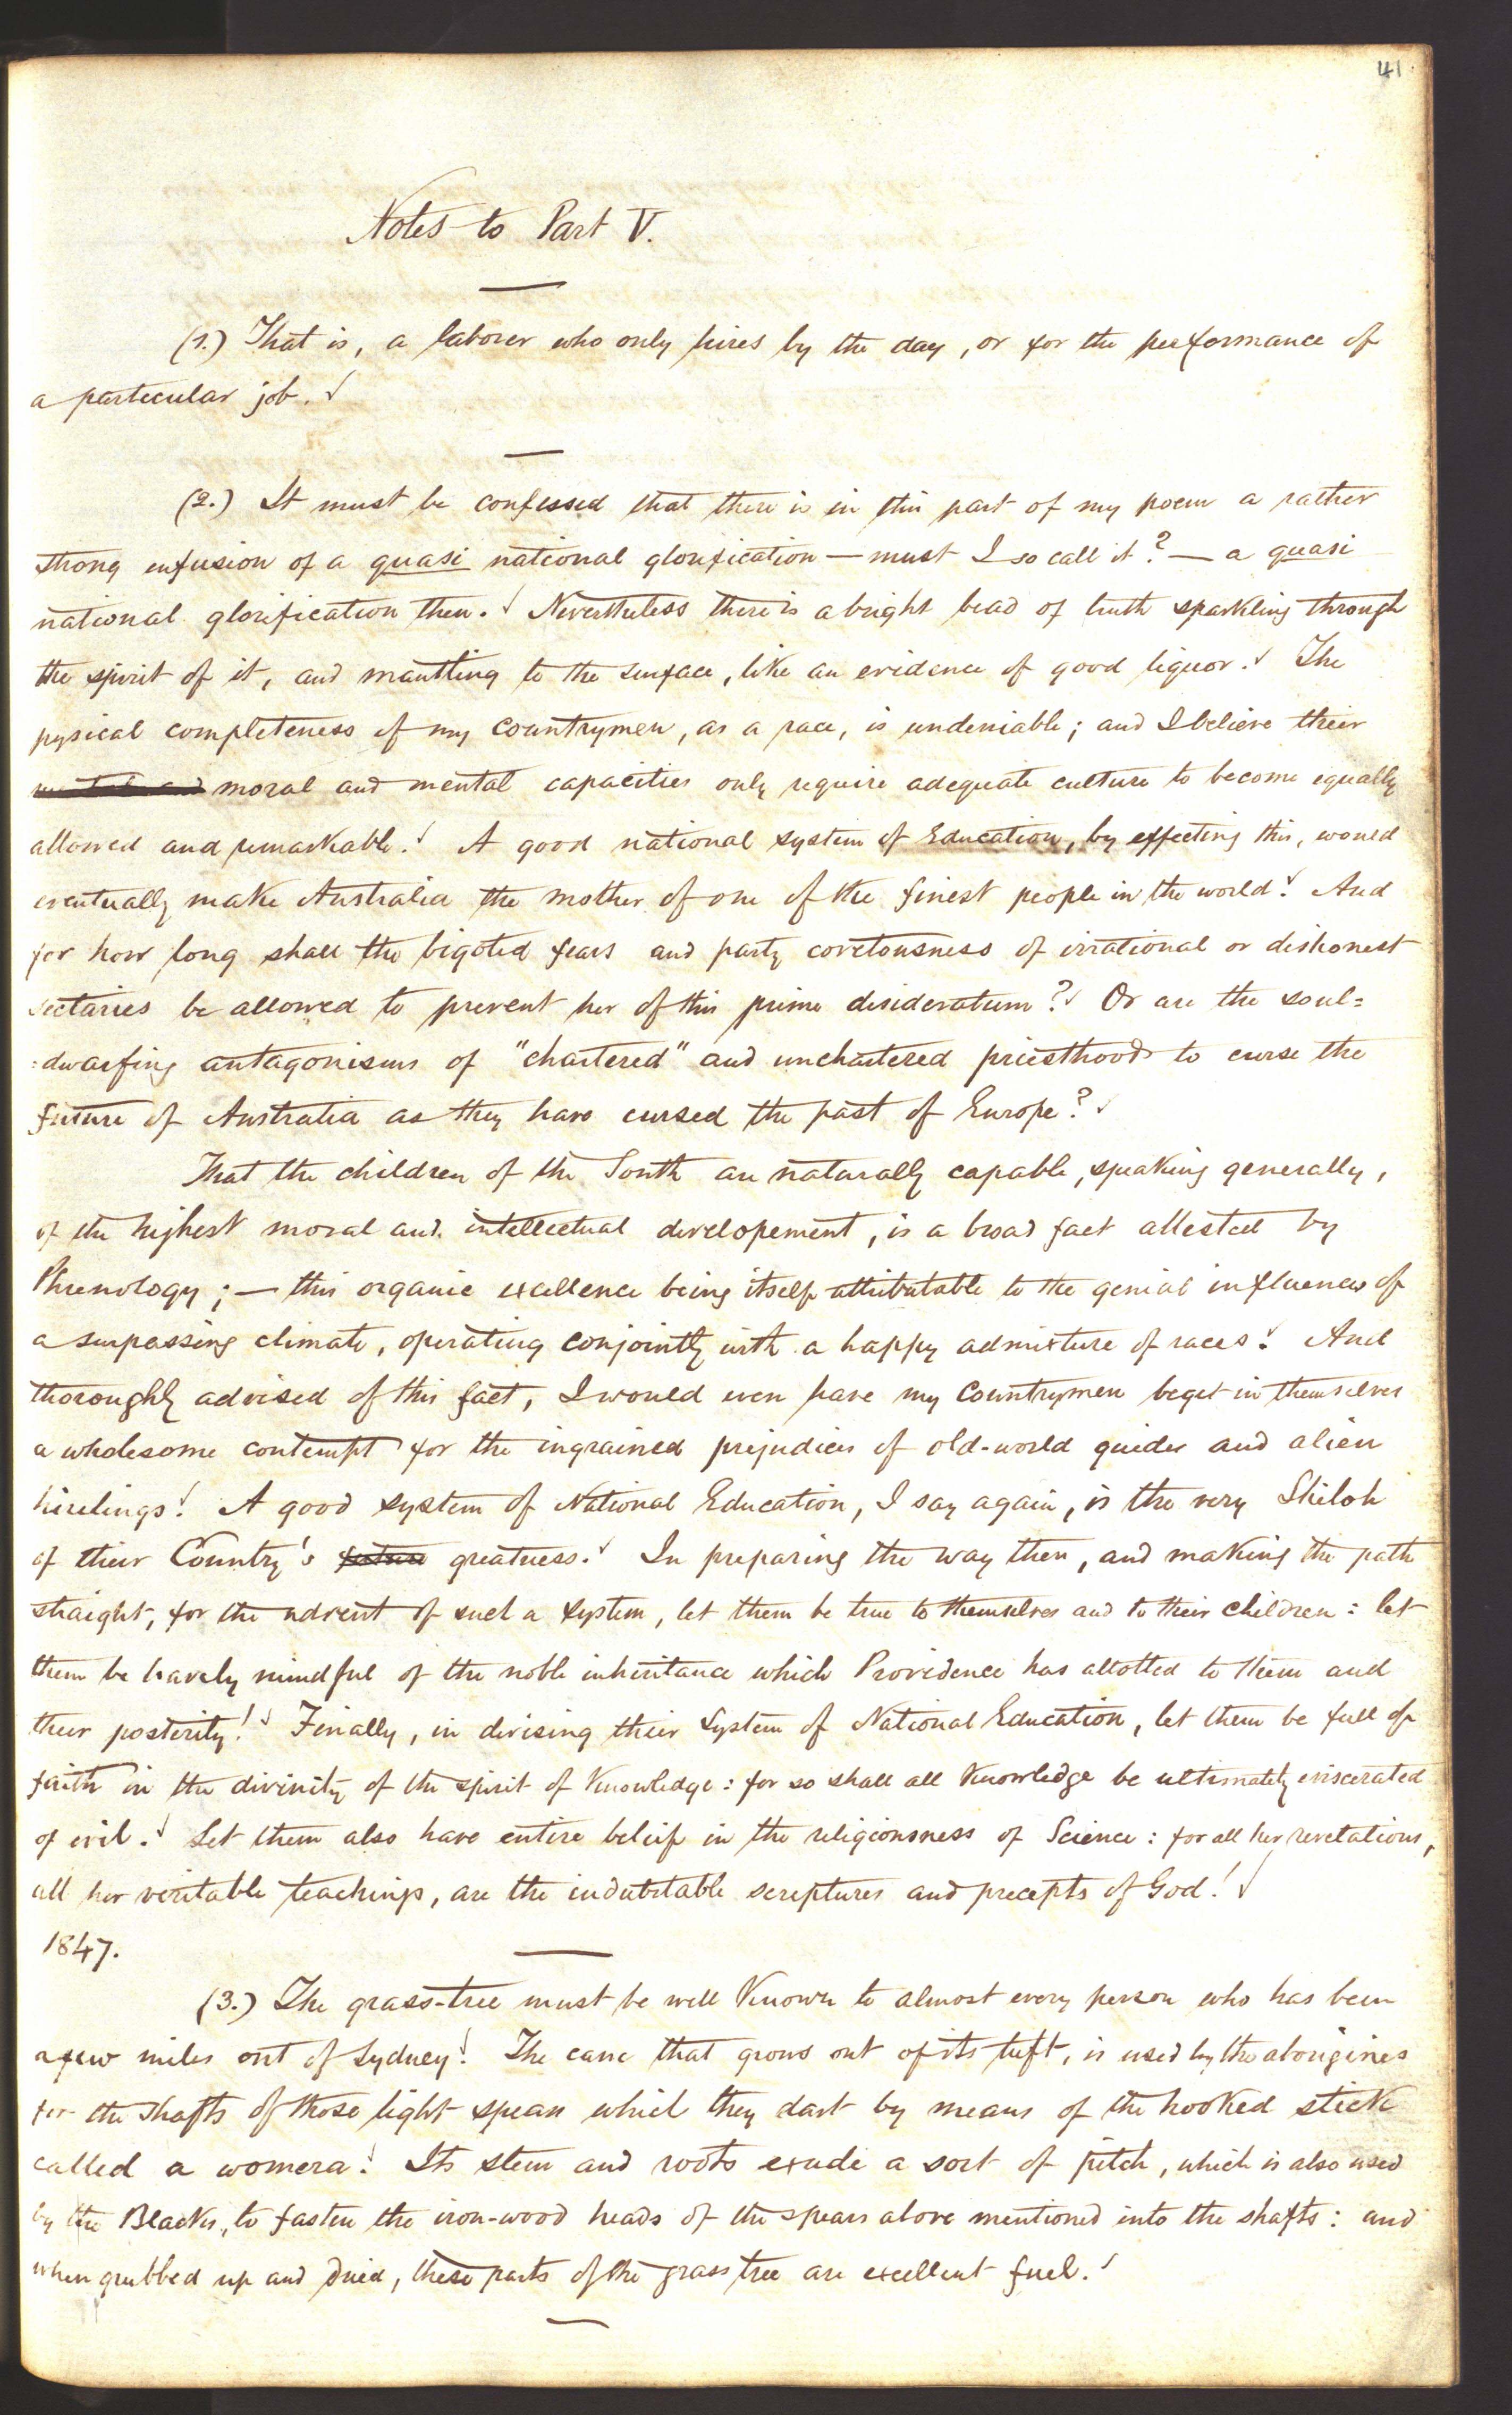 41.
Notes to Part V.
(1.) That is, a laborer who only hires by the day, or for the performance of
a particular job.
(2.) It must be confessed that there is in this part of my poem a rather
strong infusion of a quasi national glorification — must I so call it? — a quasi
national glorification then. Nevertheless there is a bright bead of truth sparkling through
the spirit of it, and mantling to the surface, like an evidence of good liquor. The
pysical completeness of my countrymen, as a race, is undeniable; and I believe their
moral and mental capacities only require adequate culture to become equally
allowed and remarkable. A good national system of Education, by effecting this, would
eventually make Australia the mother of one of the finest people in the world. And
for how long shall the bigoted fears and party covetousness of irrational or dishonest
sectaries be allowed to prevent her of this prime desideratum? Or are the soul=
=dwarfing antagonisms of "chartered" and unchartered priesthoods to curse the
future of Australia as they have cursed the past of Europe?
That the children of the South are naturally capable, speaking generally,
of the highest moral and intellectual developement, is a broad fact attested by
Phrenology; — this organic excellence being itself attributable to the genial influences of
a surpassing climate, operating conjointly with a happy admixture of races. And
thoroughly advised of this fact, I would even have my Countrymen beget in themselves
a wholesome contempt for the ingrained prejudices of old-world guides and alien
hirelings! A good system of National Education, I say again, is the very Shiloh
of their Country's future greatness. In preparing the way then, and making the path
straight, for the advent of such a system, let them be true to themselves and to their children: let
them be bravely mindful of the noble inheritance which Providence has allotted to them and
their posterity! Finally, in devising their System of National Education, let them be full of
faith in the divinity of the spirit of Knowledge: for so shall all Knowledge be ultimately eviscerated
of evil. Let them also have entire belief in the religiousness of Science: for all her revelations,
all her veritable teachings, are the indubitable scriptures and precepts of God!
1847.
(3.) The grass-tree must be well Known to almost every person who has been
a few miles out of Sydney. The cane that grows out of its tuft, is used by the aborigines
for the shafts of those light spears which they dart by means of the hooked stick
called a womera. Its stem and roots exude a sort of pitch, which is also used
by the Blacks, to fasten the iron-wood heads of the spears above mentioned into the shafts: and
when grubbed up and dried, these parts of the grass tree are excellent fuel.